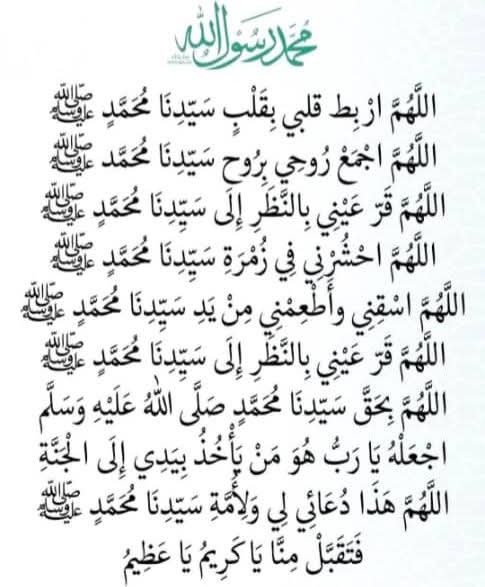 محمد رسول الله
اللَّهُمَّ ارْبِط قلبي بِقَلْبِ سَيِّدِنَا مُحَمَّدٍ ﷺ
اللَّهُمَّ اجْمَعْ رُوحِي بِرُوحِ سَيِّدِنَا مُحَمَّد ﷺ
اللَّهُمَّ قَرّ عَيْنِي بِالنَّظَرِ إِلَى سَيِّدِنَا مُحَمَّدٍ ﷺ
اللَّهُمَّ احْشُرْنِي فِي زُمْرَةِ سَيِّدِنَا مُحَمَّدٍ ﷺ
اللَّهُمَّ اسْقِنِي وأَطْعِمْنِي مِنْ يَدِ سَيِّدِنَا مُحَمَّدٍ ﷺ
اللَّهُمَّ قَرّ عَيْنِي بِالنَّظَرِ إِلَى سَيِّدِنَا مُحَمَّدٍ ﷺ
اللَّهُمَّ بِحَقّ سَيِّدِنَا مُحَمَّدٍ صَلَّى اللهُ عَلَيْهِ وَسَلَّم
اجْعَلْهُ يَا رَبُّ هُوَ مَنْ يَأْخُذُ بِيَدِي إِلَى الْجَنَّةِ
اللَّهُمَّ هَذَا دُعَائِي لِي وَلِأُمَّةِ سَيِّدِنَا مُحَمَّدٍ ﷺ
فَتَقَبَّلْ مِنَّا يَا كَرِيمُ يَا عَظِيمُ